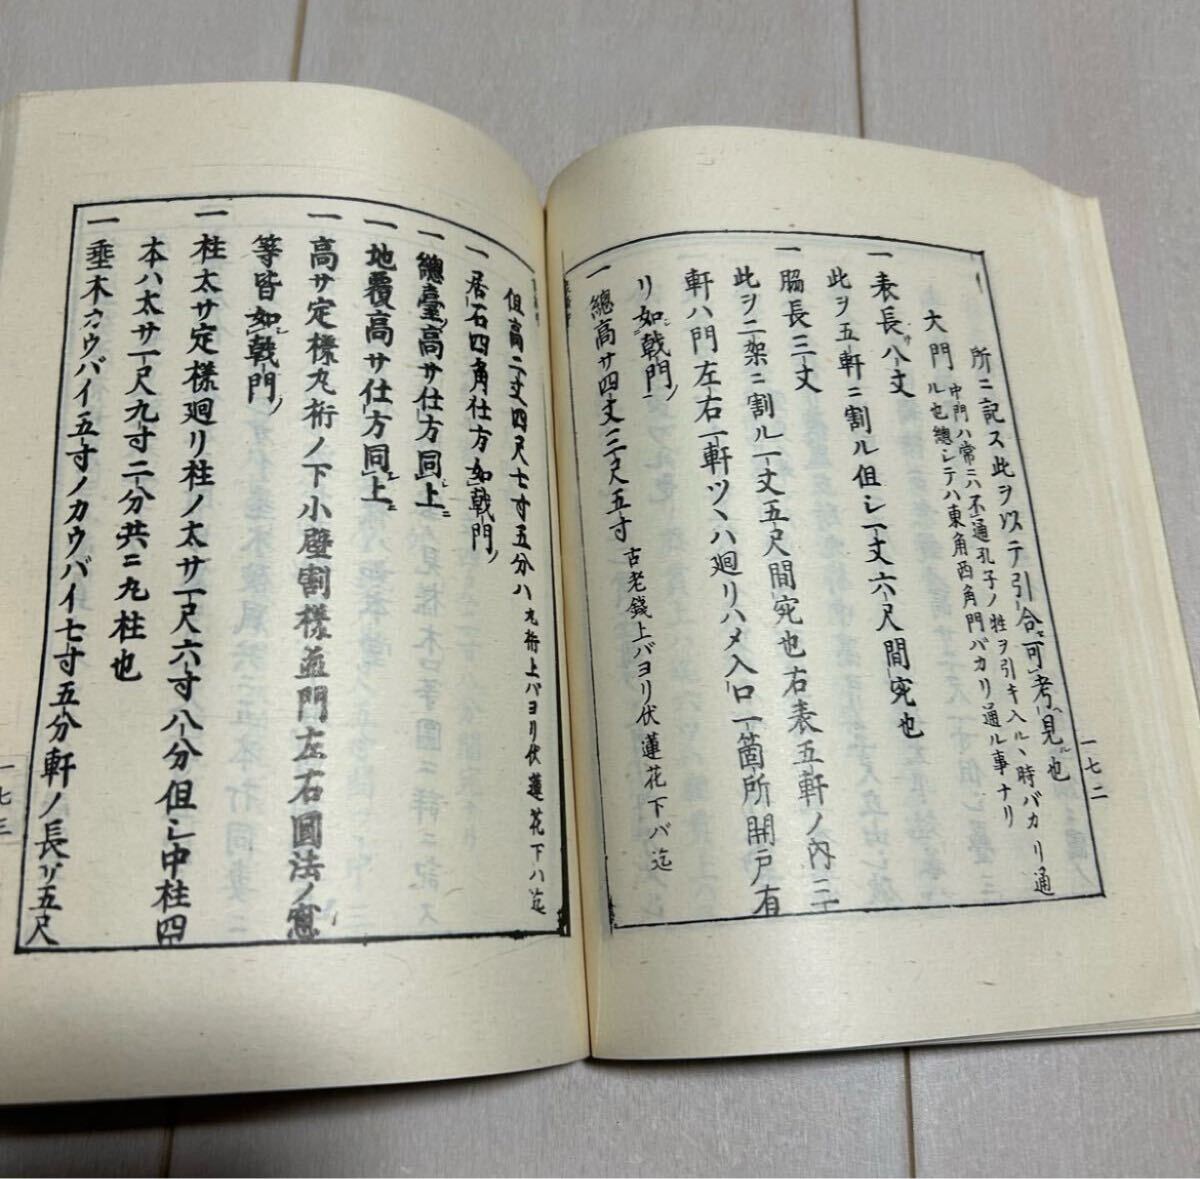 所ニ記ス此ヲ以テ引合可考見也
大門
中門ハ常ニハ不通孔子ノ牲ヲ引キ入ルヽ時バカリ通
ル也總シテハ東角西角門バカリ通ル事ナリ
一表長サ八丈
此ヲ五軒ニ割ル但シ一丈六尺間宛也
一脇長三丈
此ヲ二架ニ割ル一丈五尺間宛也右表五軒ノ内三
軒ハ門左右一軒ヅヽハ廻リハメ入口一箇所開戸有
リ如戟門ノ
一總高サ四丈三尺五寸 古老錢上バヨリ伏蓮花下バ迄
一七二
但高二丈四尺七寸五分ハ 丸桁上バヨリ伏蓮花下ハ迄
一居石四角仕方如戟門ノ
一總臺高サ仕方同上ニ
一地覆高サ仕方同上ニ
一高サ定樣丸桁ノ下小壁割樣並門左右圓法ノ窓
等皆如戟門ノ
一柱太サ定樣廻リ柱ノ太サ一尺六寸八分但シ中柱四
本ハ太サ一尺九寸二分共ニ丸柱也
一垂木カウバイ五寸ノカウバイ七寸五分軒ノ長サ五尺
一七三